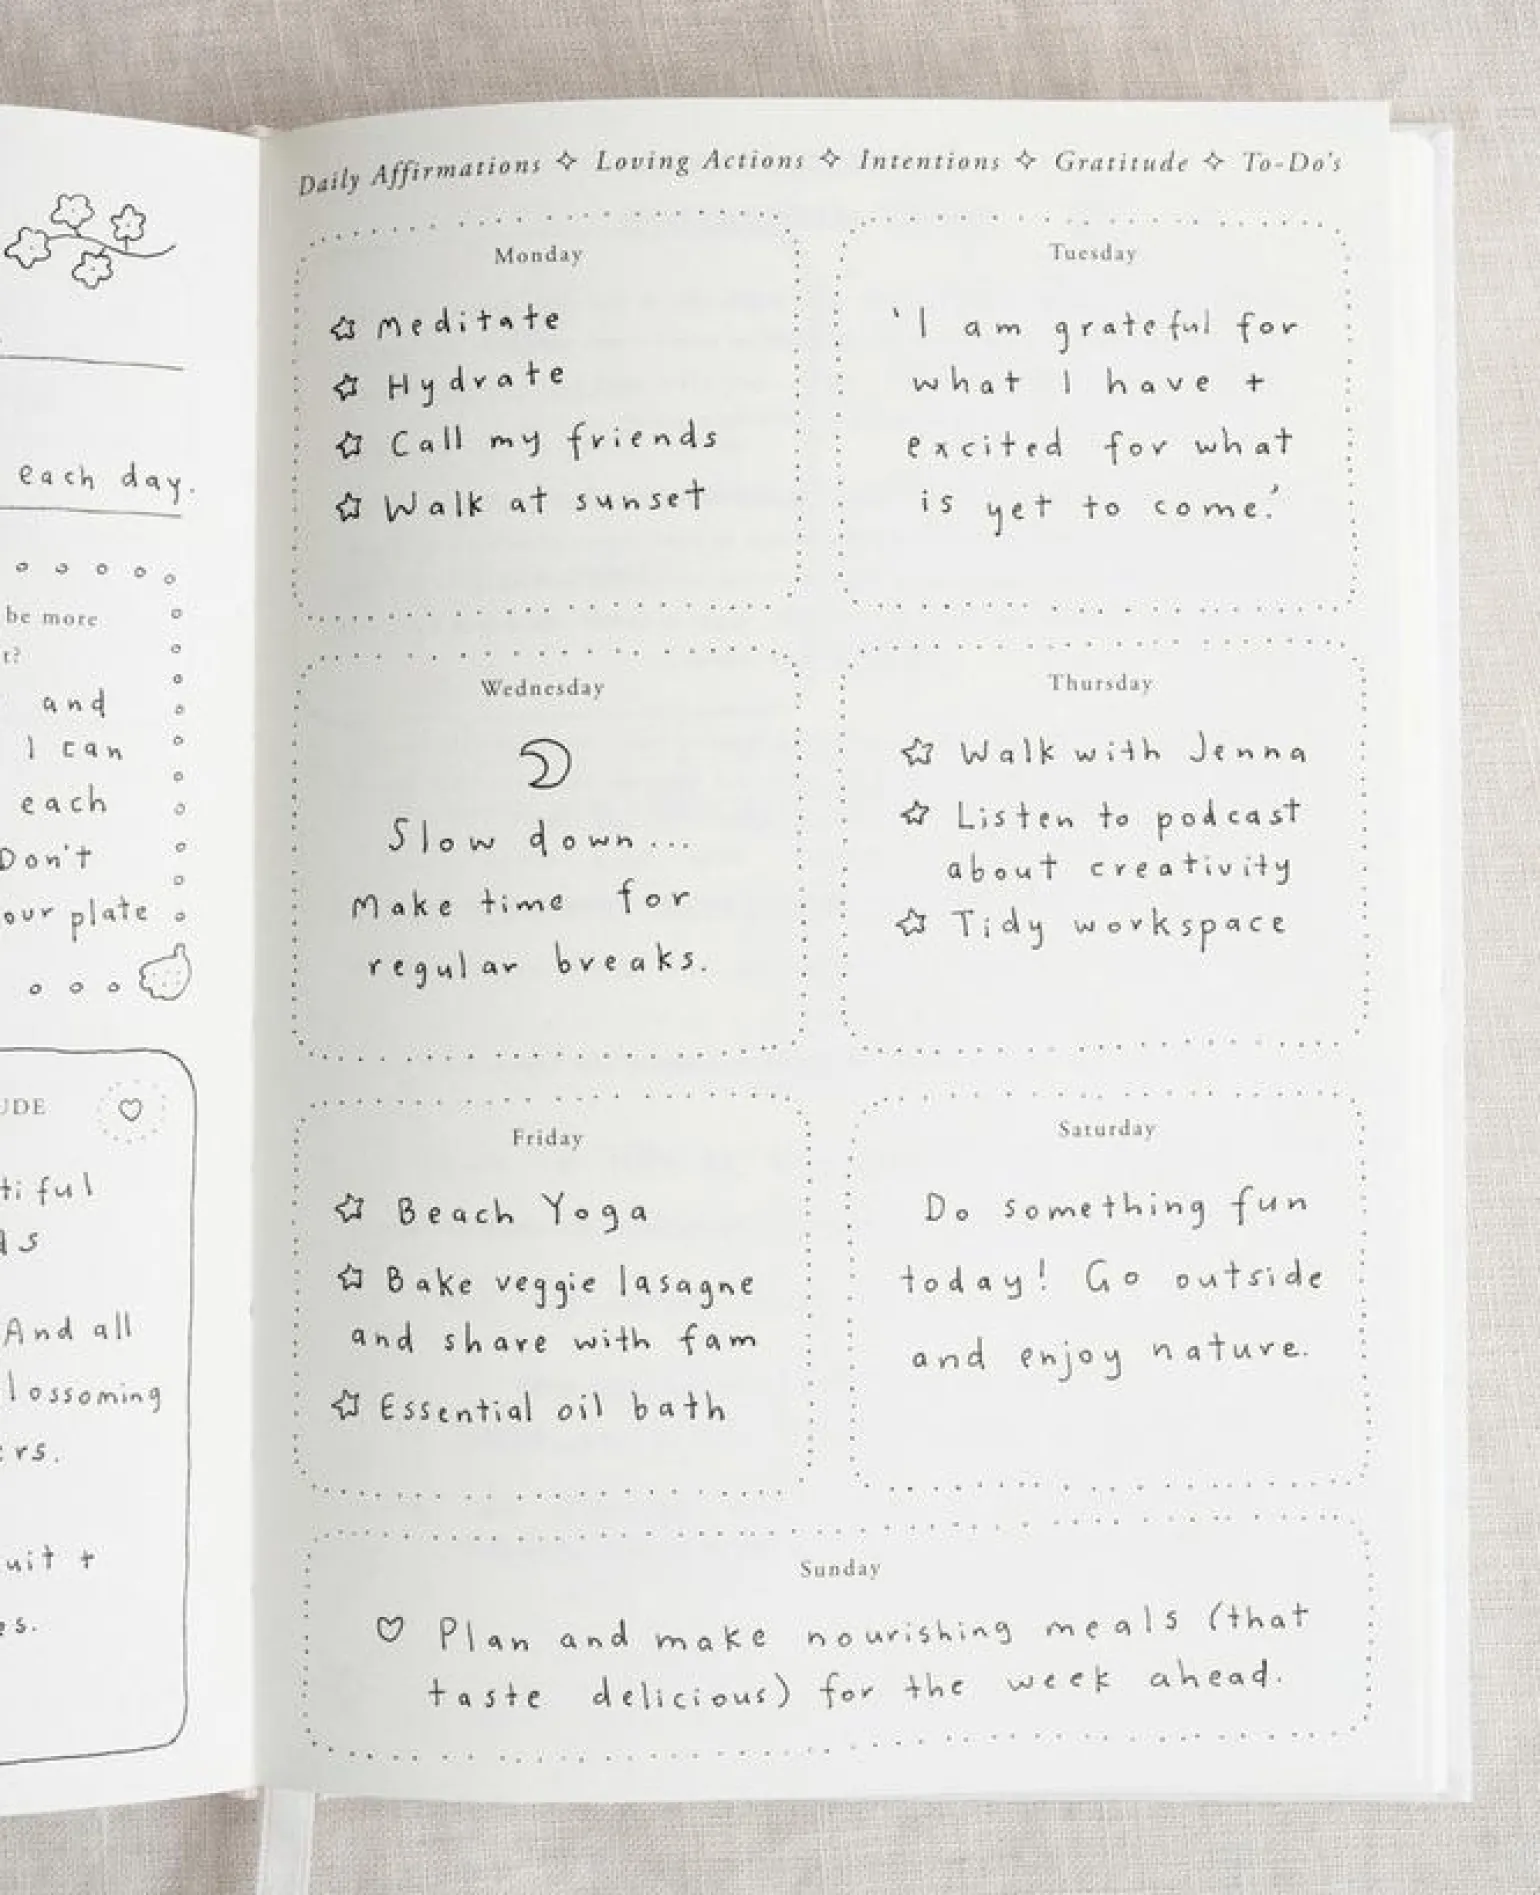 each day.
be more
t?
and
I can
each
Don't
our plate
UDE
tiful
ds
And all
lossoming
ers.
uit +
es.
Daily Affirmations ✧ Loving Actions ✧ Intentions ✧ Gratitude ✧ To-Do's
Monday
Meditate
Hydrate
Call my friends
Walk at sunset
Tuesday
'I am grateful for
what I have +
excited for what
is yet to come.'
Wednesday
Slow down...
Make time for
regular breaks.
Thursday
Walk with Jenna
Listen to podcast
about creativity
Tidy workspace
Friday
Beach Yoga
Bake veggie lasagne
and share with fam
Essential oil bath
Saturday
Do something fun
today! Go outside
and enjoy nature.
Sunday
♡ Plan and make nourishing meals (that
taste delicious) for the week ahead.